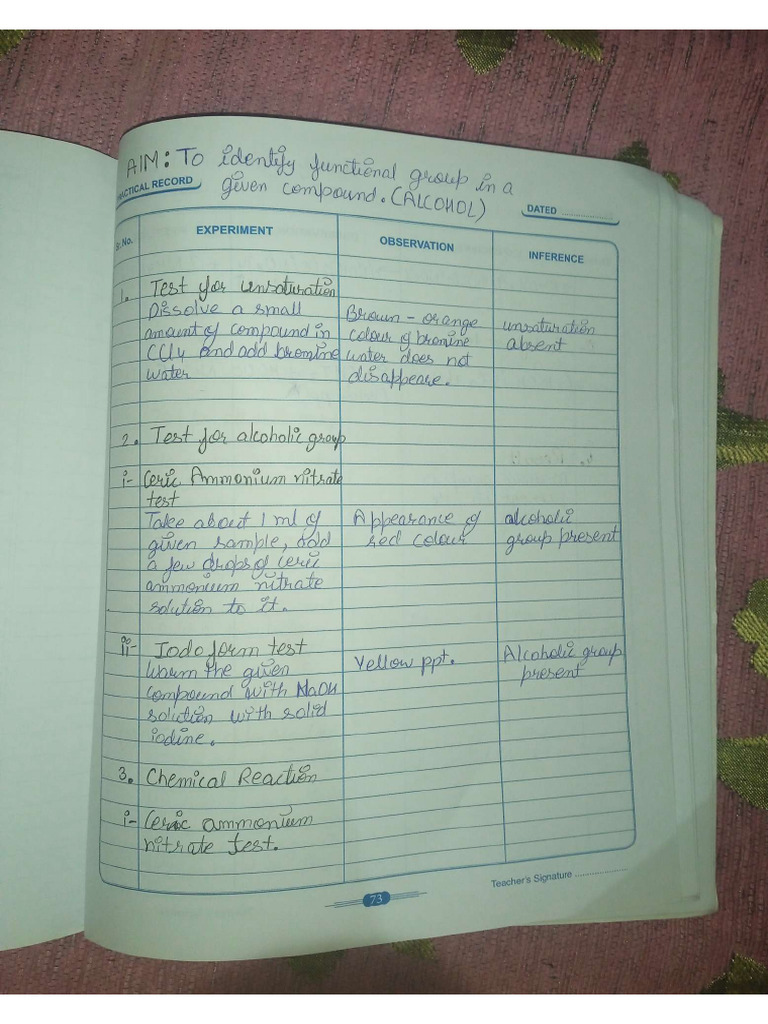 AIM: To identify functional group in a
given compound. (ALCOHOL)
PRACTICAL RECORD
DATED ..................
Sr.No.
EXPERIMENT
OBSERVATION
INFERENCE
1. Test for unsaturation
Dissolve a small
amount of compound in
CCl4 and add bromine
water
Brown - orange
colour of bromine
water does not
disappeare.
unsaturation
absent
2. Test for alcoholic group
i- Ceric Ammonium nitrate
test
Take about 1 ml of
given sample, add
a few drops of ceric
ammonium nitrate
solution to it.
Appearance of
red colour
alcoholic
group present
ii- Iodo form test
Warm the given
compound with NaOH
solution with solid
iodine.
Yellow ppt.
Alcoholic group
present
3. Chemical Reaction
i- Ceric ammonium
nitrate test.
Teacher's Signature ..................
73